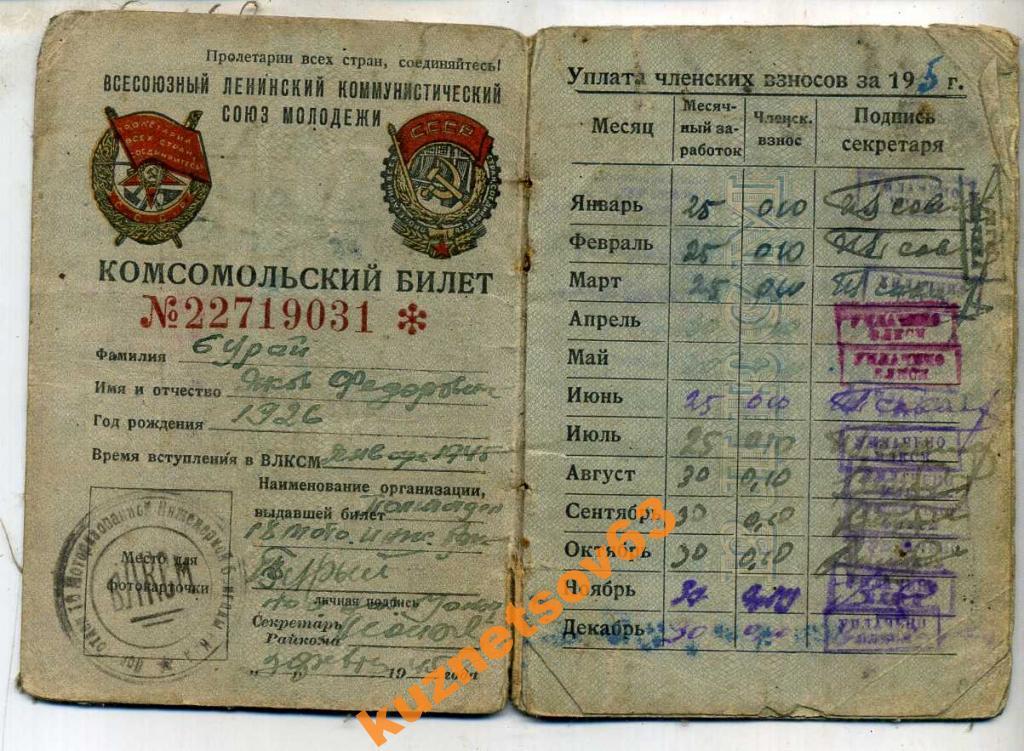 Пролетарии всех стран, соединяйтесь!
ВСЕСОЮЗНЫЙ ЛЕНИНСКИЙ КОММУНИСТИЧЕСКИЙ
СОЮЗ МОЛОДЕЖИ
ПРОЛЕТАРИИ
ВСЕХ СТРАН
СОЕДИНЯЙТЕСЬ
СССР
СССР
КОМСОМОЛЬСКИЙ БИЛЕТ
№22719031 *
Фамилия Бурай
Имя и отчество Яков Федорович
Год рождения 1926
Время вступления в ВЛКСМ январь 1945
Наименование организации,
выдавшей билет
18 мото. инж.
Место для
фотокарточки
ВЛКСМ
личная подпись
Секретарь
Райкома
" " 1945 года
Уплата членских взносов за 195 г.
Месяц Месяч-ный за-работок Членск. взнос Подпись секретаря
Январь 25 0 10
Февраль 25 0 10
Март 25 0 10
Апрель УПЛАЧЕНО ВЛКСМ
Май УПЛАЧЕНО ВЛКСМ
Июнь 25 0 10
Июль 25 0 10 УПЛАЧЕНО ВЛКСМ
Август 30 0,10
Сентябрь 30 0,10
Октябрь 30 0,10
Ноябрь 30
Декабрь 30 0,10 УПЛАЧЕНО
kuznetsov63